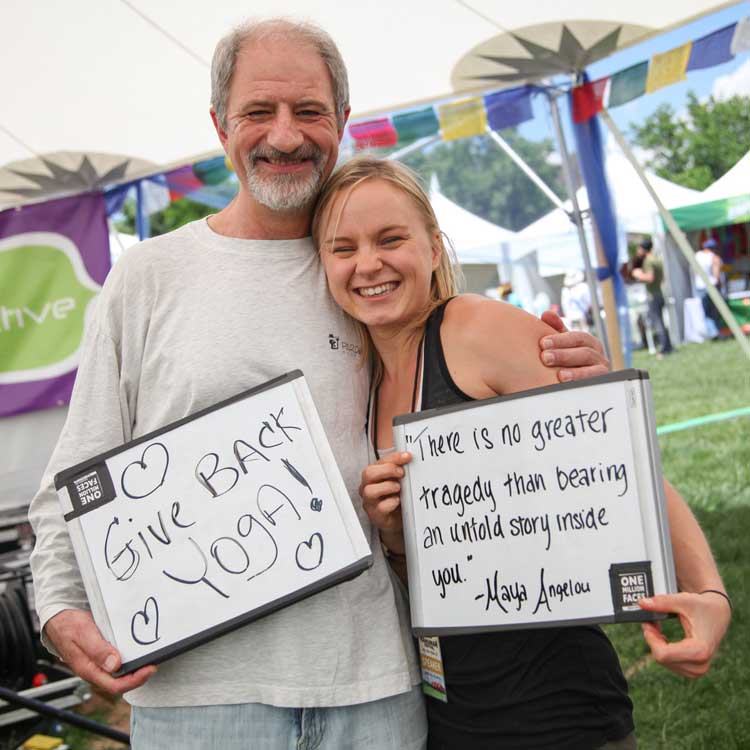 tive
ONE
MILLION
FACES
Give BACK
YOGA!
"There is no greater
tragedy than bearing
an untold story inside
you."
-Maya Angelou
ONE
MILLION
FACES
SPEAKER